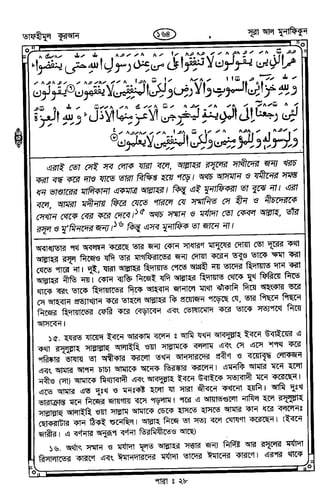 তাফহীমুল কুরআন
১৬৪
সূরা আল মুনাফিকুন
هُمُ الَّذِينَ يَقُولُونَ لَا تُنْفِقُوا عَلَى مَنْ عِنْدَ رَسُولِ اللهِ حَتَّى يَنْفَضُّوا
وَلِلَّهِ خَزَائِنُ السَّمَوَتِ وَالْأَرْضِ وَلَكِنَّ الْمُنْفِقِينَ لَا يَفْقَهُونَ يَقُولُونَ
لَئِنْ رَجَعْنَا إِلَى الْمَدِينَةِ لَيُخْرِجَنَّ الْأَعَزُّ مِنْهَا الْأَذَلَّ وَلِلَّهِ الْعِزَّةُ
وَلِرَسُولِهِ وَلِلْمُؤْمِنِينَ وَلَكِنَّ الْمُنْفِقِينَ لَا يَعْلَمُونَ
এরাই তো সেই সব লোক যারা বলে, আল্লাহর রসূলের সাথীদের জন্য খরচ
করা বন্ধ করে দাও যাতে তারা বিক্ষিপ্ত হয়ে পড়ে। অথচ আসমান ও যমীনের সমস্ত
ধন ভাণ্ডারের মালিকানা একমাত্র আল্লাহর। কিন্তু এই মুনাফিকরা তা বুঝে না। এরা
বলে, আমরা মদীনায় ফিরে যেতে পারলে যে সম্মানিত সে হীন ও নীচদেরকে
সেখান থেকে বের করে দেবে।১৫ অথচ সম্মান ও মর্যাদা তো কেবল আল্লাহ, তাঁর
রসূল ও মু'মিনদের জন্য।১৬ কিন্তু এসব মুনাফিক তা জানে না।
অবাধ্যতার পথ অবলম্বন করেছে তার জন্য কোন সাধারণ মানুষের দোয়া তো দূরের কথা
আল্লাহর রসূল নিজেও যদি তার মাগফিরাতের জন্য দোয়া করেন তবুও তাকে ক্ষমা করা
যেতে পারে না। দুই, যারা আল্লাহর হিদায়াত পেতে আগ্রহী নয় তাদের হিদায়াত দান করা
আল্লাহর নীতি নয়। কোন ব্যক্তি নিজেই যদি আল্লাহর হিদায়াত থেকে মুখ ফিরিয়ে নিতে
থাকে বরং তাকে হিদায়াতের দিকে আহবান জানালে মাথা ঝাঁকানি দিয়ে অহংকার ভরে
সে আহবান প্রত্যাখ্যান করে তাহলে আল্লাহর কি প্রয়োজন পড়েছে যে, তার পিছনে পিছনে
নিজের হিদায়াতের ফেরি করে বেড়াবেন এবং তোষামোদ করে তাকে সত্যপথে নিয়ে
আসবেন।
১৫. হযরত যায়েদ ইবনে আরকাম বলেন : আমি যখন আবদুল্লাহ ইবনে উবাইয়ের এ
কথা রসূলুল্লাহ সাল্লাল্লাহু আলাইহি ওয়া সাল্লামকে বললাম এবং সে এসে শপথ করে
পরিষ্কার ভাষায় তা অস্বীকার করলো তখন আনসারদের প্রবীণ ও বয়োবৃদ্ধ লোকজন
এবং আমার আপন চাচা আমাকে অনেক তিরস্কার করলেন। এমনকি আমার মনে হলো
নবীও (সা) আমাকে মিথ্যাবাদী এবং আবদুল্লাহ ইবনে উবাইকে সত্যবাদী মনে করেছেন।
এতে আমার এত দুঃখ ও মনঃকষ্ট হলো যা সারা জীবনে কখনো হয়নি। আমি দুঃখ
ভারাক্রান্ত মনে নিজের জায়গায় বসে পড়লাম। পরে এ আয়াতগুলো নাযিল হলে রসূলুল্লাহ
সাল্লাল্লাহু আলাইহি ওয়া সাল্লাম আমাকে ডেকে হাসতে হাসতে আমার কান ধরে বললেনঃ
ছোকরাটার কান ঠিকই শুনেছিল। আল্লাহ নিজে তা সত্য বলে ঘোষণা করেছেন। (ইবনে
জারীর। এ বর্ণনার অনুরূপ বর্ণনা তিরমিযীতেও আছে)
১৬. অর্থাৎ সম্মান ও মর্যাদা মূলত আল্লাহর সত্তার জন্য নির্দিষ্ট আর রসূলের মর্যাদা
রিসালাতের কারণে এবং ঈমানদারদের মর্যাদা তাদের ঈমানের কারণে। এরপর থাকে
পারা : ২৮